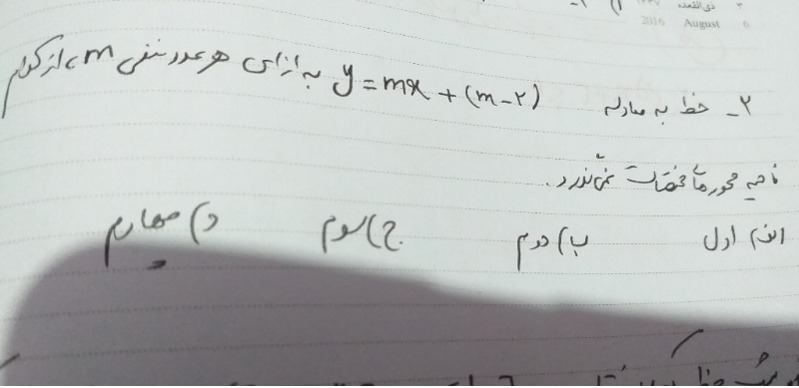 ۳ ذی‌القعده
2016 August 6
۲- خط به معادله y = mx + (m-۲) به ازای هر عدد منفی m، از کدام
ناحیه محورهای مختصات نمی‌گذرد.
الف) اول ب) دوم ج) سوم د) چهارم